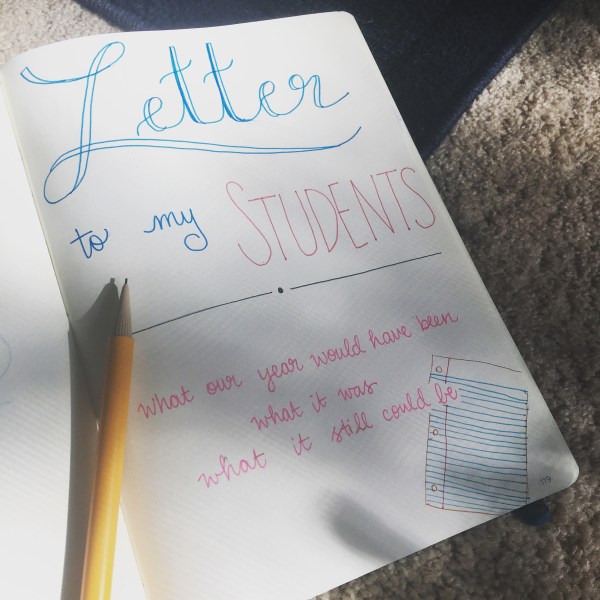 Letter
to my STUDENTS
what our year would have been
what it was
what it still could be
119